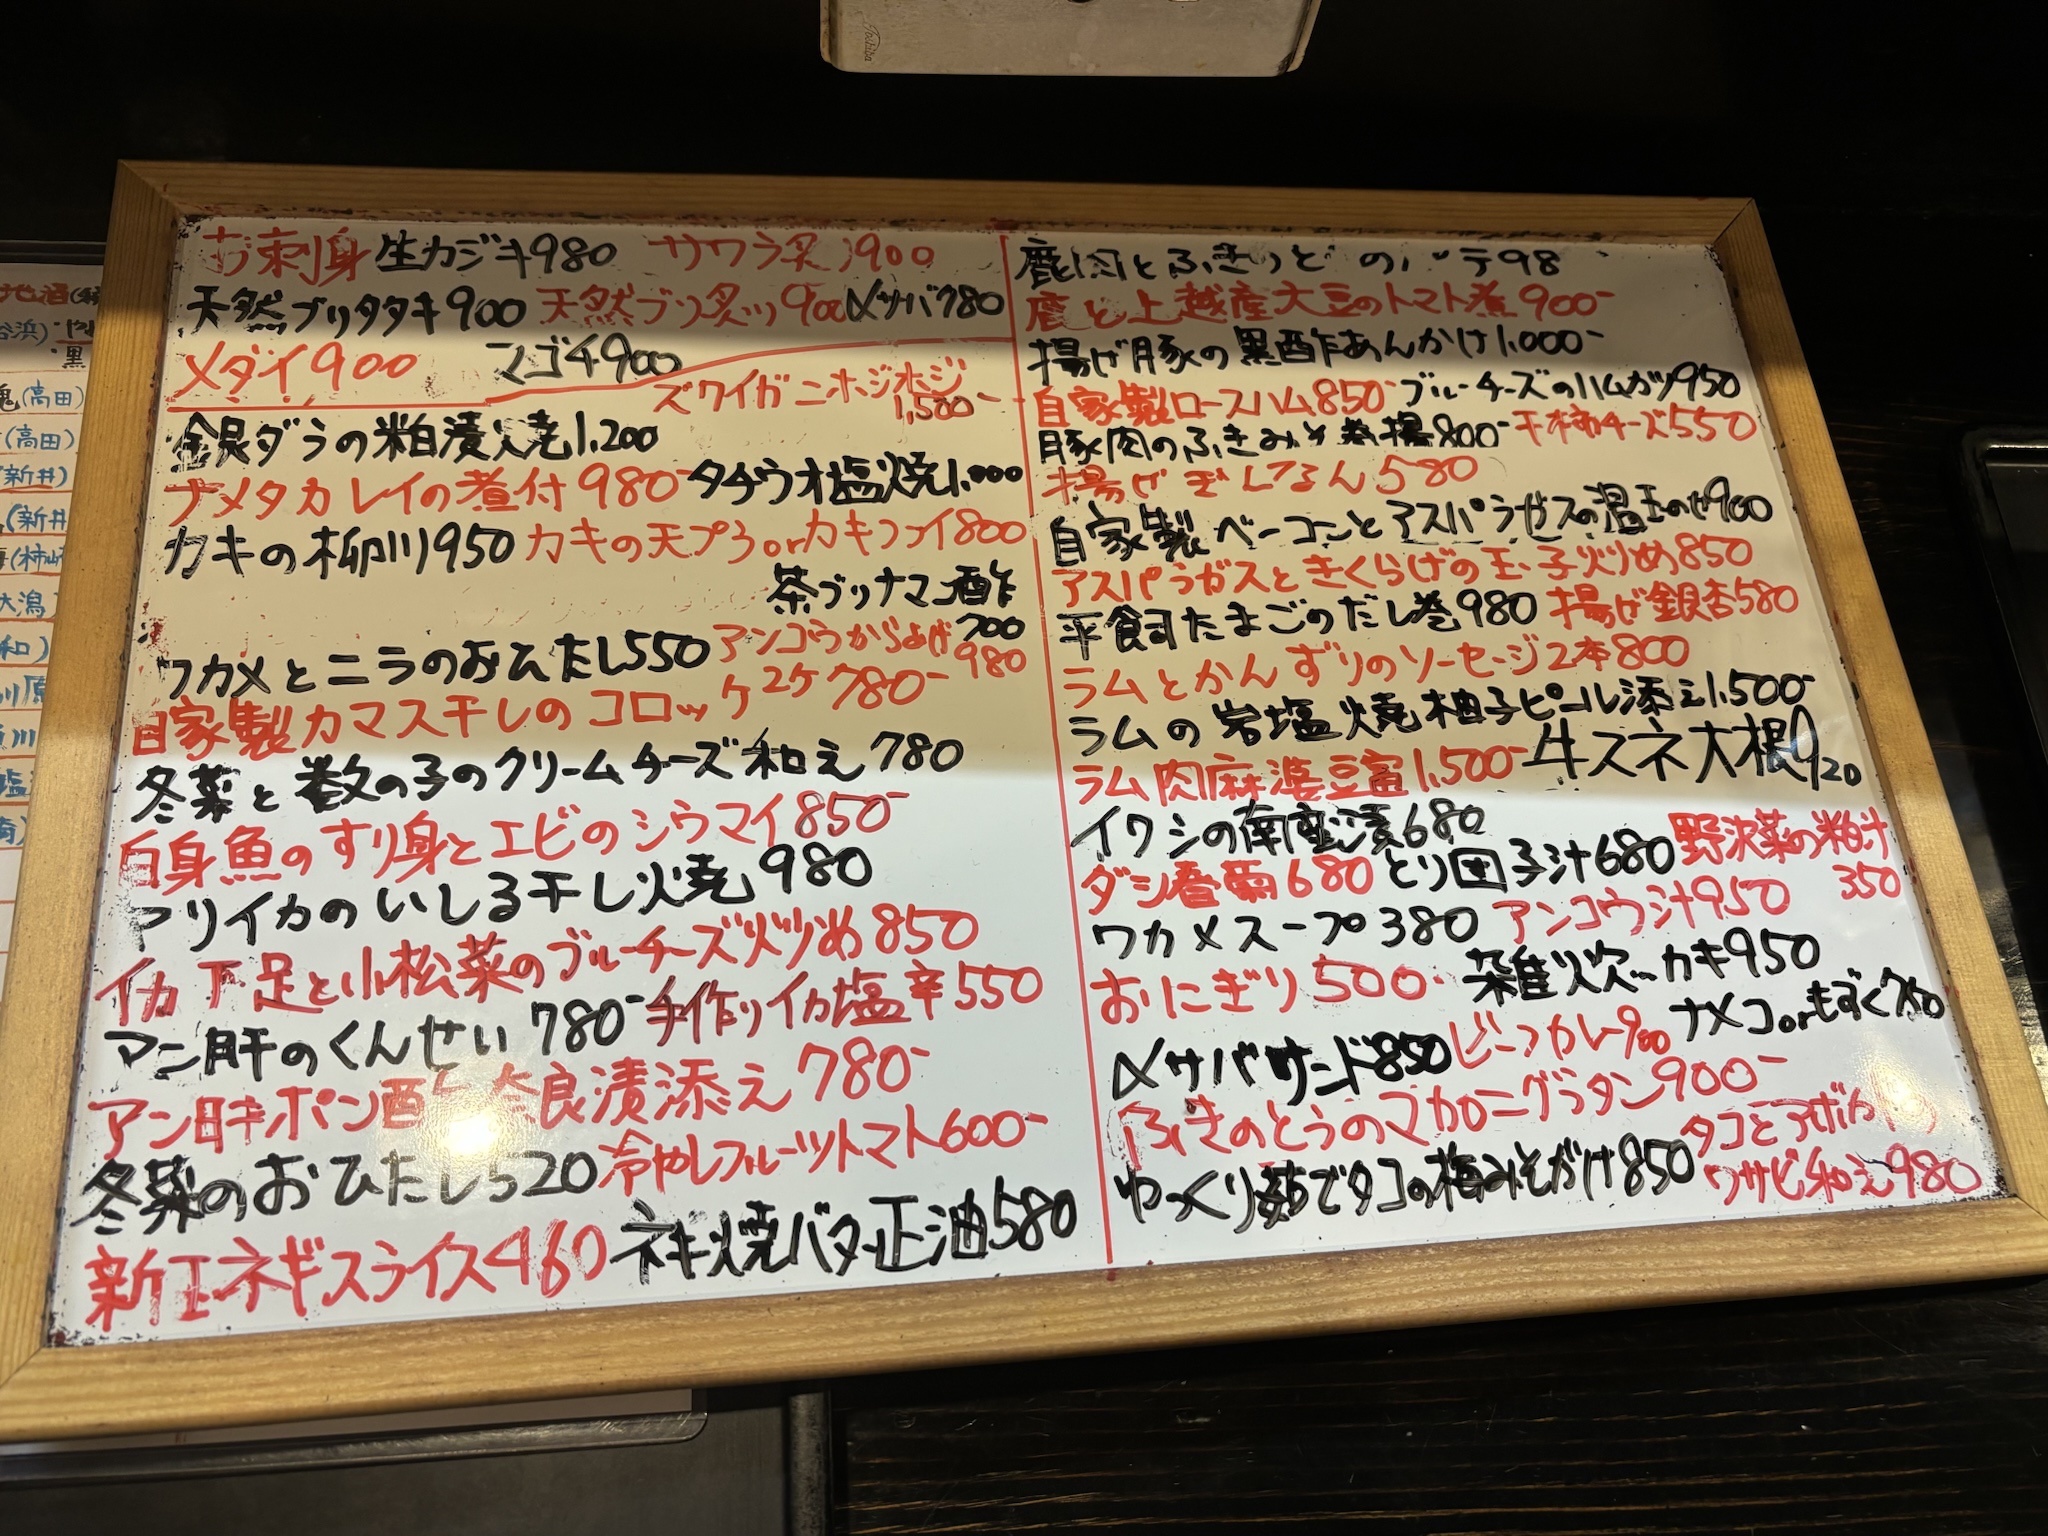 お刺身 生カジキ980 サワラ炙り900
天然ブリタタキ900 天然ブリ炙り900 〆サバ780
メダイ900 マゴチ900
ズワイガニホジホジ
1,500-
銀ダラの粕漬け焼1,200
ナメタカレイの煮付980- タチウオ塩焼1,000
カキの柳川950 カキの天プラorカキフライ800
茶ブリナマコ酢
700
ワカメとニラのおひたし550 アンコウからあげ
980
自家製カマス干しのコロッケ2ケ780-
冬菜と数の子のクリームチーズ和え780
白身魚のすり身とエビのシウマイ850-
アリイカのいしる干し焼980
イカ下足と小松菜のブルーチーズ炒め850
アン肝のくんせい780- 手作りイカ塩辛550
アン肝ポン酢 奈良漬添え780-
冬菜のおひたし520 冷やしフルーツトマト600-
新玉ネギスライス460 ネギ焼バター正油580
鹿肉とふきのとうのパテ98
鹿と上越産大豆のトマト煮900-
揚げ豚の黒酢あんかけ1,000-
自家製ロースハム850- ブルーチーズのハムカツ950
豚肉のふきみそ巻揚800- 干柿チーズ550
揚げぎんなん580
自家製ベーコンとアスパラガスの温玉のせ900
アスパラガスときくらげの玉子炒め850
平飼たまごのだし巻980 揚げ銀杏580
ラムとかんずりのソーセージ2本800
ラムの岩塩焼柚子ピール添え1,500-
ラム肉麻婆豆腐1,500- 牛スネ大根920
イワシの南蛮漬680
ダシ春菊680 とり団子汁680 野沢菜の粕汁
350
ワカメスープ380 アンコウ汁950
おにぎり500- 雑炊 カキ950
ナメコorもずく750
〆サバサンド850 ビーフカレー900
ふきのとうのマカロニグラタン900-
ゆっくり茹でタコの梅みそがけ850 タコとアボカドの
ワサビ和え980